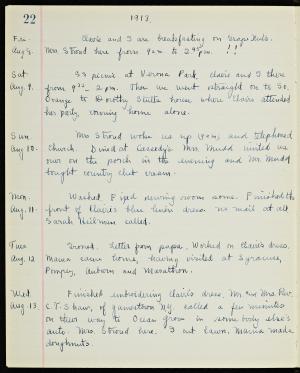 22 1913.
Fri. Claire and I are breakfasting on Grape Nuts.
Aug 8. Mrs. Stroud here from 9 am to 2 pm. !!
Sat. SS picnic at Verona Park. Claire and I there
Aug. 9. from 9 - 2 pm. Then we went straight on to So.
Orange to Dorothy house where Claire attended
her party, coming home alone.
Sun. Mrs Stroud woke us up and telephoned
Aug. 10. Church. Dined at Mrs. Mudd invited us
over on the porch in the evening and Mr. Mudd
bought country club cream.
Mon. Washed. Fixed sewing room some. Finished the
Aug. 11. front of Claire's blue linen dress. no mail at all
Sarah called.
Tues Ironed. Letter from papa. Worked on Claire's dress.
Aug. 12 Mama came home, having visited at Syracuse,
Pompey, Auburn and Marathon.
Wed. Finished embroidering Claire's dress. Mr. and Mrs. Rev.
Aug. 13. Shaw, of NY. called a few minutes
on their way to Ocean Grove in somebody else's
auto. Mrs. Stroud here. I cut lawn. Mama made
doughnuts.